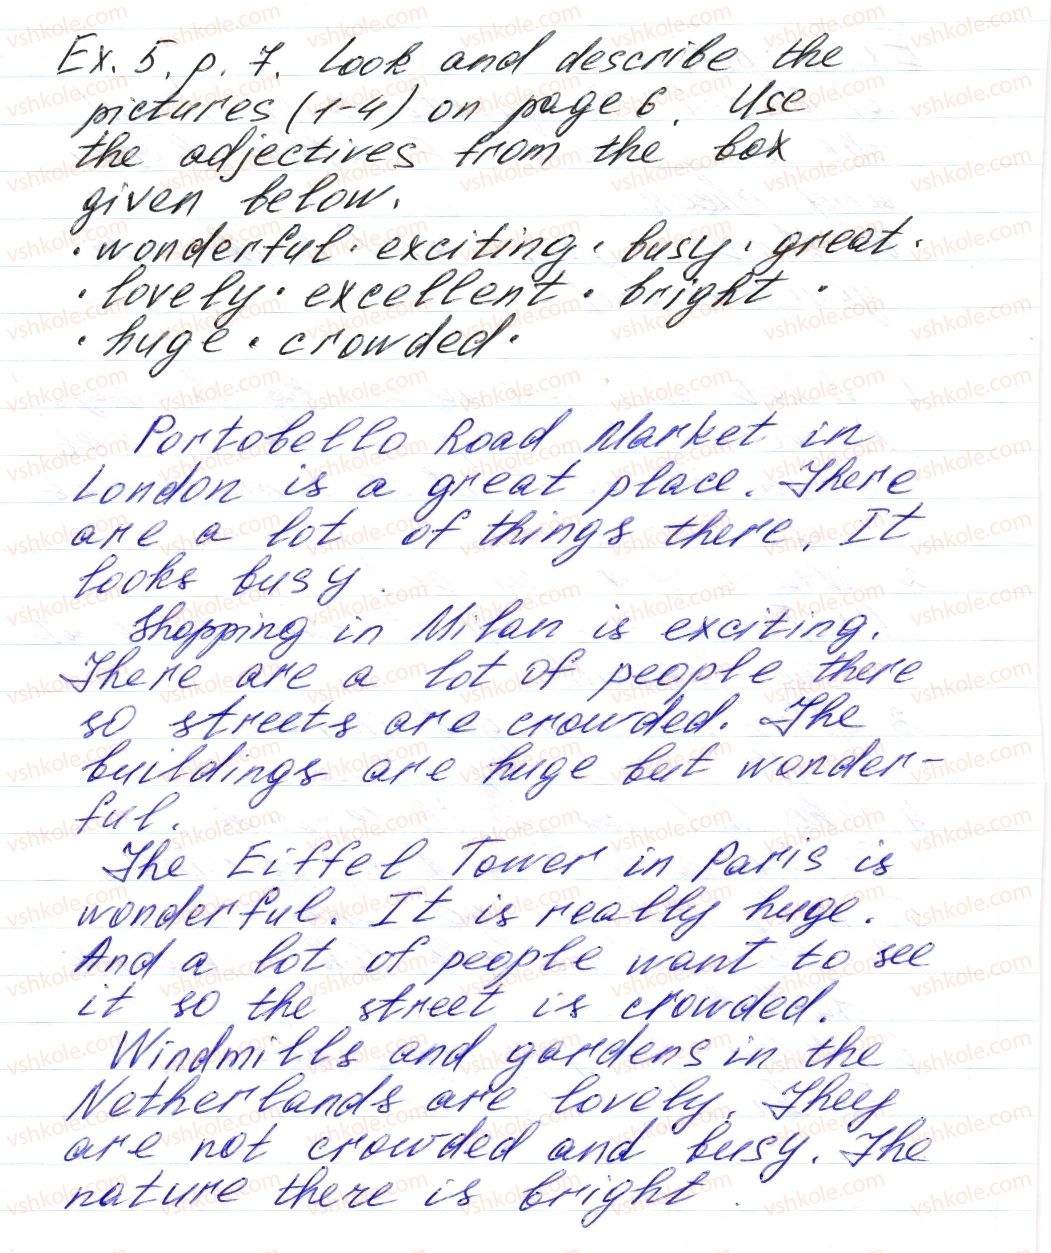 Ex. 5, p. 7. Look and describe the
pictures (1-4) on page 6. Use
the adjectives from the box
given below.
· wonderful · exciting · busy · great ·
· lovely · excellent · bright ·
· huge · crowded ·
Portobello Road Market in
London is a great place. There
are a lot of things there. It
looks busy.
Shopping in Milan is exciting.
There are a lot of people there
so streets are crowded. The
buildings are huge but wonder-
ful.
The Eiffel Tower in Paris is
wonderful. It is really huge.
And a lot of people want to see
it so the street is crowded.
Windmills and gardens in the
Netherlands are lovely. They
are not crowded and busy. The
nature there is bright.